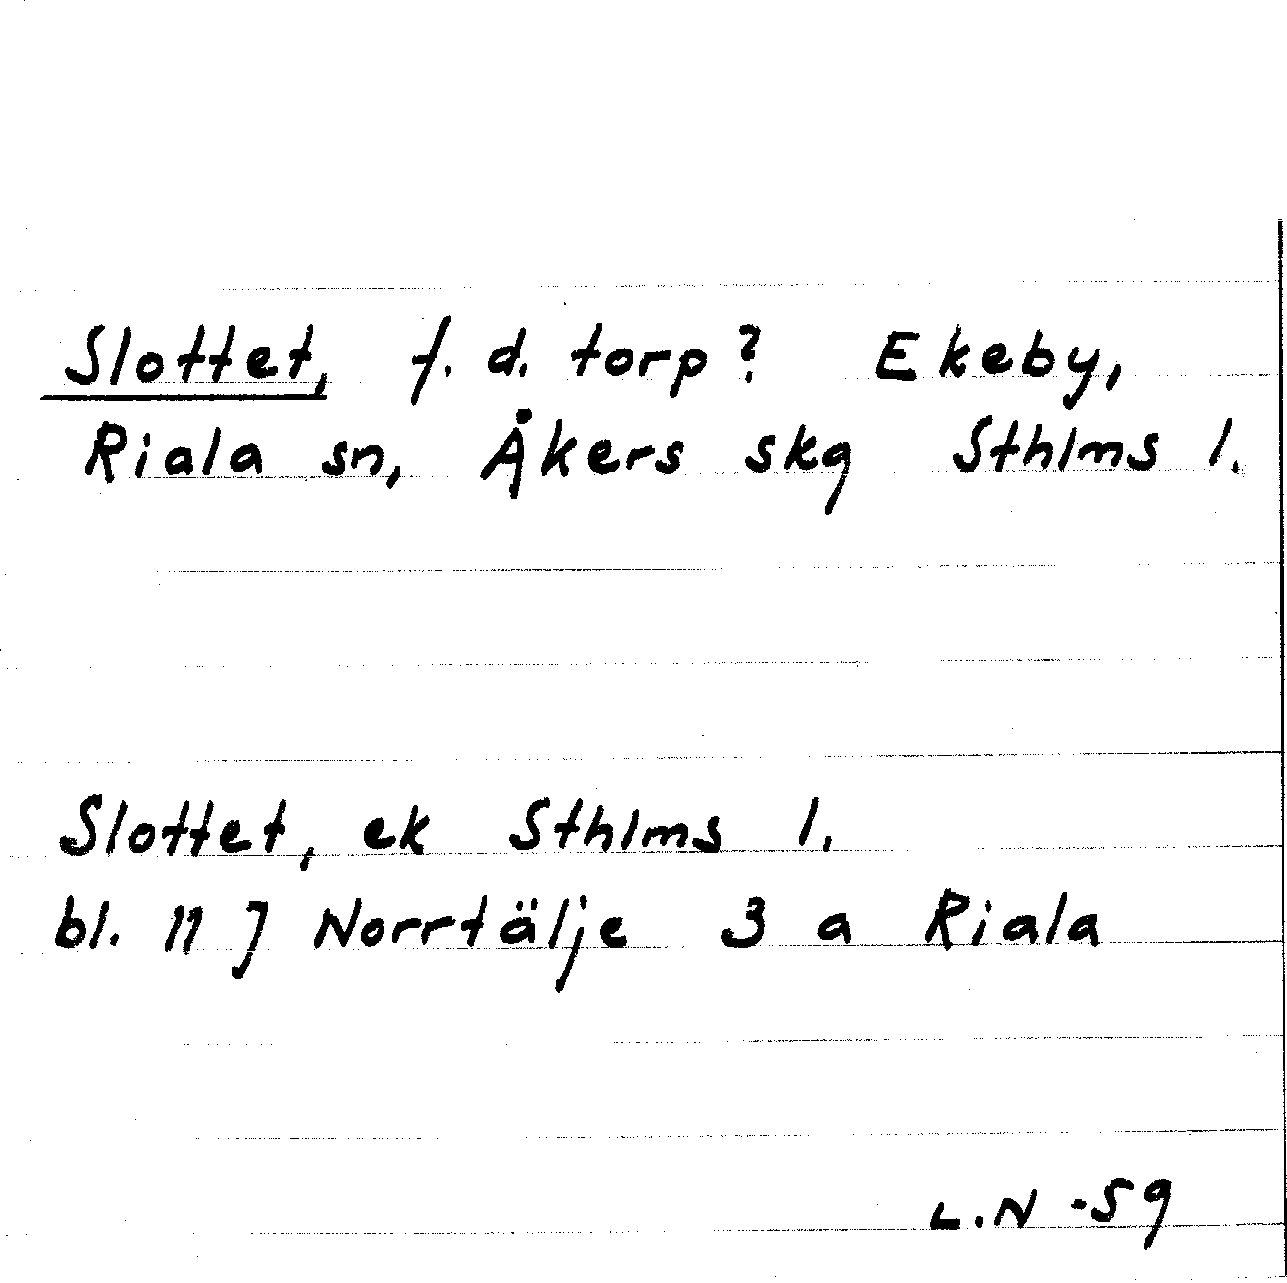 Slottet, f. d. torp? Ekeby,
Riala sn, Åkers skg Sthlms l.
Slottet, ek Sthlms l.
bl. 11 J Norrtälje 3 a Riala
L.N -59